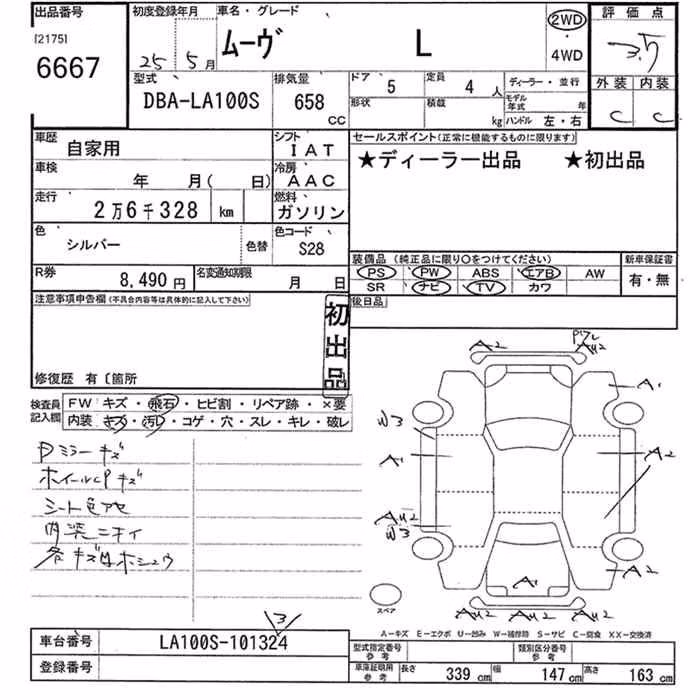 出品番号
[2175]
6667
初度登録年月
25年 5月
車名・グレード
ムーヴ L
2WD
・
4WD
評価点
3.5
外装 内装
C C
型式
DBA-LA100S
排気量
658
CC
ドア 5
定員 4 人
形状
積載 kg
ディーラー・並行
モデル年式 年
ハンドル 左・右
車歴
自家用
シフト
IAT
車検
年 月( 日)
冷房
AAC
走行
2万6千328 km
燃料
ガソリン
色
シルバー
色替
色コード
S28
R券
8,490円
名変通知期限
月 日
セールスポイント(正常に機能するものに限ります)
★ディーラー出品 ★初出品
装備品 (純正品に限り○をつけてください)
PS PW ABS エアB AW
SR ナビ TV カワ
新車保証書
有・無
後日品
注意事項申告欄(不具合内容等は具体的に記入して下さい)
初出品
修復歴 有〔箇所
検査員記入欄
FW キズ・飛石・ヒビ割・リペア跡・×要
内装 キズ・汚レ・コゲ・穴・スレ・キレ・破レ
Pミラーキズ
ホイールCPキズ
シート色アセ
内装ニオイ
各キズ凹ホシュウ
A2
AU2
A1
W3
A1
A2
AU2
W3
A1
A2
AU2
AU2
AU2
スペア
A-キズ E-エクボ U-凹み W-補修跡 S-サビ C-腐食 XX-交換済
3
車台番号
LA100S-101324
登録番号
型式指定番号
参考
類別区分番号
参考
車庫証明用
参考
長さ 339 cm
幅 147 cm
高さ 163 cm